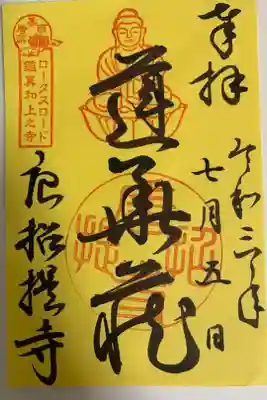 奉拝
令和三年
七月五日
蓮華蔵
ロータスロード
鑑真和上之寺
唐招提寺